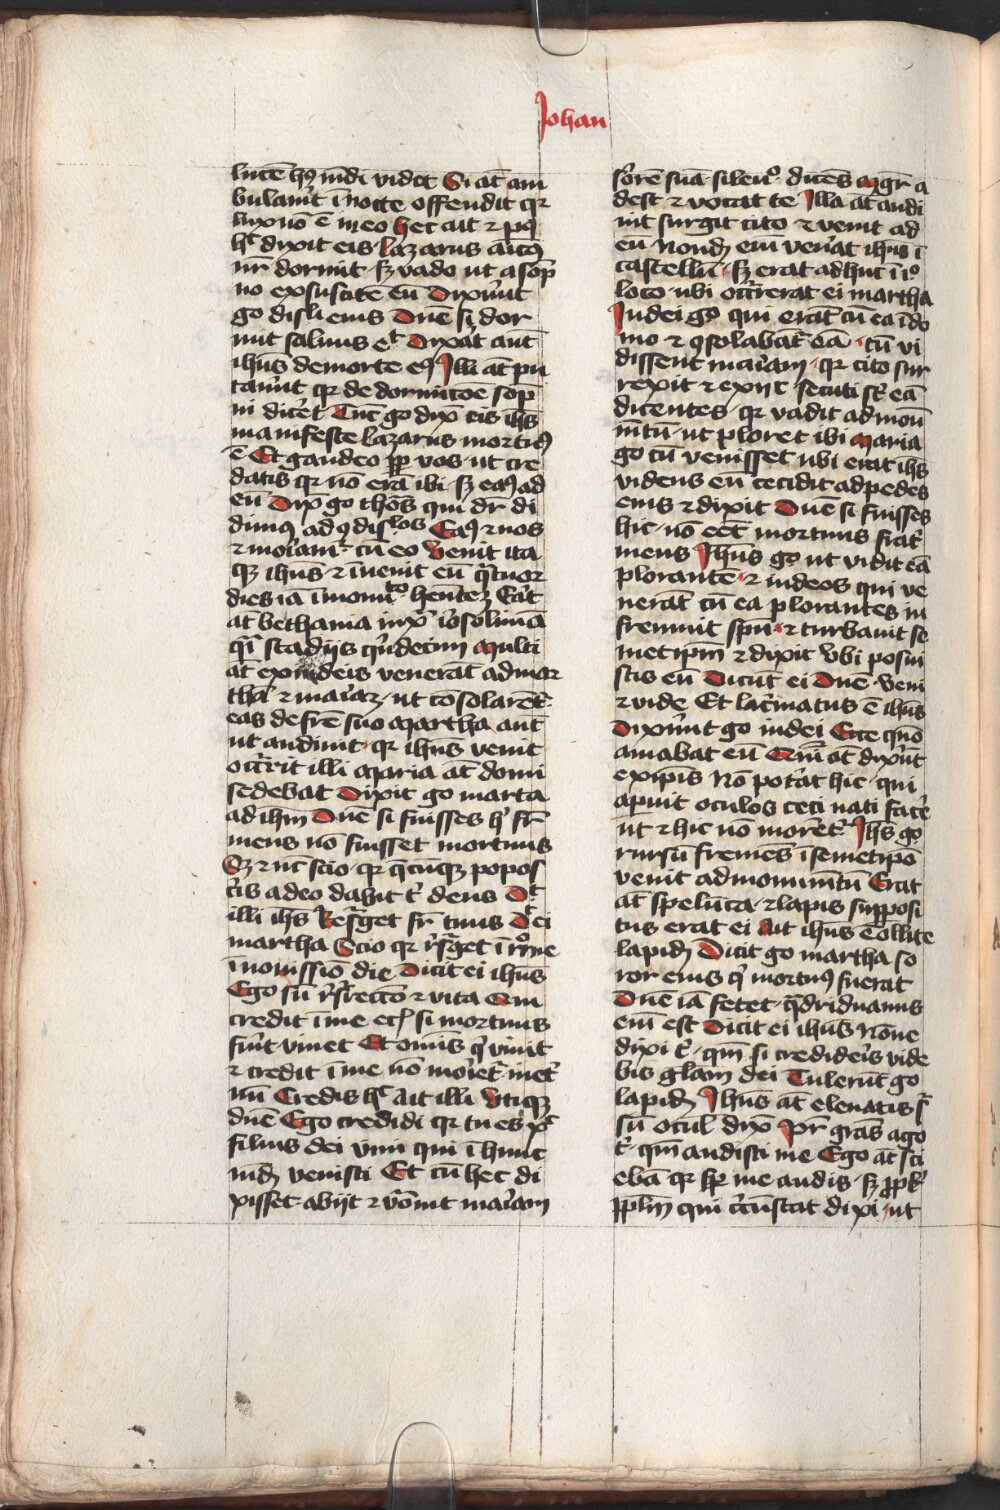 Johan
lucē hꝰ mūdi videt Si āt am
bulav̄it ī nocte offendit qꝛ
lux nō ē in eo hec ait ⁊ pꝰ
hͨ dixit eis lazarus amicꝰ
nr̄ dormit sꝫ vado ut a sōp
no exsuscitē eū Dixer̄ut
go disl̄i eius Dn̄e si dor
mit saluus eͭ Dixat̄ aut̄
ihūs de morte eꝰ Illi āt pu
tav̄ut qꝛ de dormicōe sōp
ni dicēt Tūc go dix̄ eis ihs̄
manifeste lazarus mortuꝰ
ē Et gaudeo pp̄ vos ut cre
datis qꝛ nō erā ibi sꝫ eaꝰ ad
eū Dix̄ go thōs qui dr̄ di
dimꝰ ad ꝯdislos Eaꝰ ⁊ nos
⁊ moriam̄ cū eo Venit ita
qꝫ ihūs ⁊ īuenit eū q̄tuor
dies iā ī monuto hentē Erāt
āt bethania iuxͣ ih̄osolimā
qͣi stadijs qīdecim Multi
āt ex iudeis venerāt ad mar
thā ⁊ mariā ut cōsolarent̄
eas de fr̄e suo Martha aut̄
ut audiuit qꝛ ihūs venit
occr̄rit illi Maria āt domi
sedebat Dixit go marta
ad ihm̄ Dn̄e si fuisses hͨ fr̄
meus nō fuisset mortuus
Sꝫ ⁊ nc̄ scio qꝛ q̄cūqꝫ popos
cīs a deo dabit tͥ deus Dͭ
illi ihs Resͬget fr̄ tuus Dͭ ei
martha Scio qꝛ rͤsͬget ī rr̄one
ī nouissīo die Dicit ei ihūs
Ego sū rͤsͬrectō ⁊ vita Qui
credit ī me ecͣ si mortuus
fūit viuet Et omīs qͥ viuit
⁊ credit ī me nō moriet̄ ī et̄
nū Credis hͨ Ait illi Vtiqꝫ
dn̄e Ego credidi qꝛ tu es xp̄c
filius dei viui qui ī hunc
mūdū venisti Et cū hec di
xisset abijt ⁊ vōuit mariam
sōrē suā silēuo dicēs Mgr̄ a
dest ⁊ vocat te Illa āt audi
uit surgit cito ⁊ venit ad
eū nondū eim̄ ven̄at ihūs ī
castellū sꝫ erat adhuc ī io
loco ubi occr̄rerat ei martha
Iudei go qui erāt cū ea ī do
mo ⁊ ꝯsolabāt̄ eā cū vi
dissent mariam qꝛ cito sur
rexit ⁊ exijt secuti sͭ eā
dicentes qꝛ vadit ad monu
mtū ut ploret ibi Maria
go cū venisset ubi erat ihs̄
videns eū cecidit ad pedes
eius ⁊ dixit Dn̄e si fuisses
hic nō eēt mortuus frat̄
meus Ihūs go ut vidit eā
plorantē ⁊ iudeos qui ve
nerāt cū ea plorantes in
fremuit spū ⁊ turbauit se
metip̄m ⁊ dixit Vbi posui
stis eū Dicūt ei Dn̄e veni
⁊ vide Et lacr̄matus ē ihūs
Dixer̄unt go iudei Ecce quō
amabat eū Quī āt dixer̄ūt
ex ip̄is Nō potāt hic qui
apuit oculos ceci nati facē
ut ⁊ hic nō morēt̄ Ihs go
rursū fremēs ī semetip̄o
venit ad monumntū Erat
āt spelūca ⁊ lapis suppposi
tus erat ei Ait ihūs Tollite
lapidē Dicit go martha so
ror eius qͥ mortuꝰ fuerat
Dn̄e iā fetet q̄driduanus
eim̄ est Dicit ei ihūs Nōne
dixi tͥ qm̄ si credideis vide
bis glam̄ dei Tulerūt go
lapidē Ihūs āt eleuatis sͬ
sū ocul̄ dix̄ Pr̄ grās ago
tͥ qm̄ audisti me Ego āt sci
ebā qꝛ sp̄ me audis sꝫ pp̄t
pplm̄ qui cr̄cūstat dixi ut